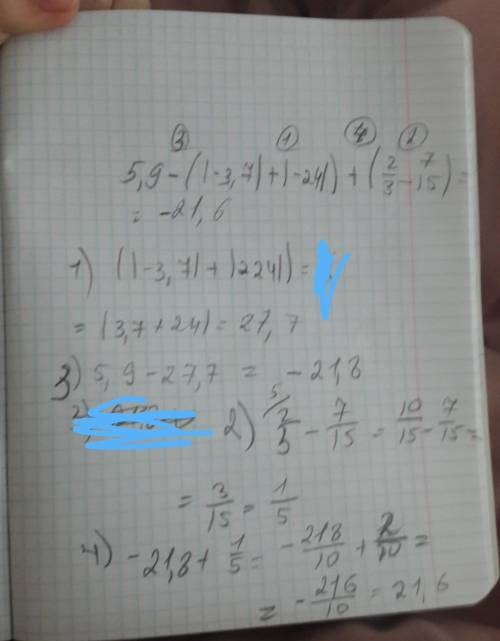 ③ ① ④ ②
5,9-(|-3,7|+|-24|)+(2/3-7/15)=
= -21,6
1) (|-3,7|+|224|)=
= (3,7+24)=27,7
3) 5,9-27,7 = -21,8
2) 5/ 2/3 - 7/15 = 10/15 - 7/15 =
= 3/15 = 1/5
4) -21,8+1/5= -218/10 + 2/10 =
= -216/10 = 21,6